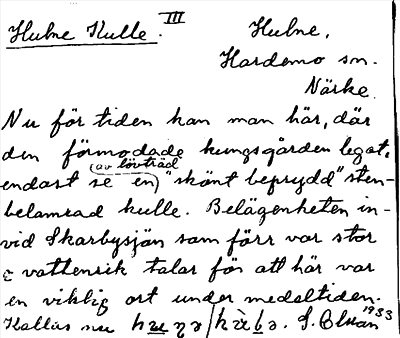 Hulne Kulle. III
Hulne,
Hardemo sn.
Närke.
Nu för tiden kan man här, där
den förmodade kungsgården legat,
endast se en (av lövträd) "skönt beprydd" sten-
belamrad kulle. Belägenheten in-
vid Skarbysjön som förr var stor
o vattenrik talar för att här var
en viktig ort under medeltiden.
Kallas nu
1933